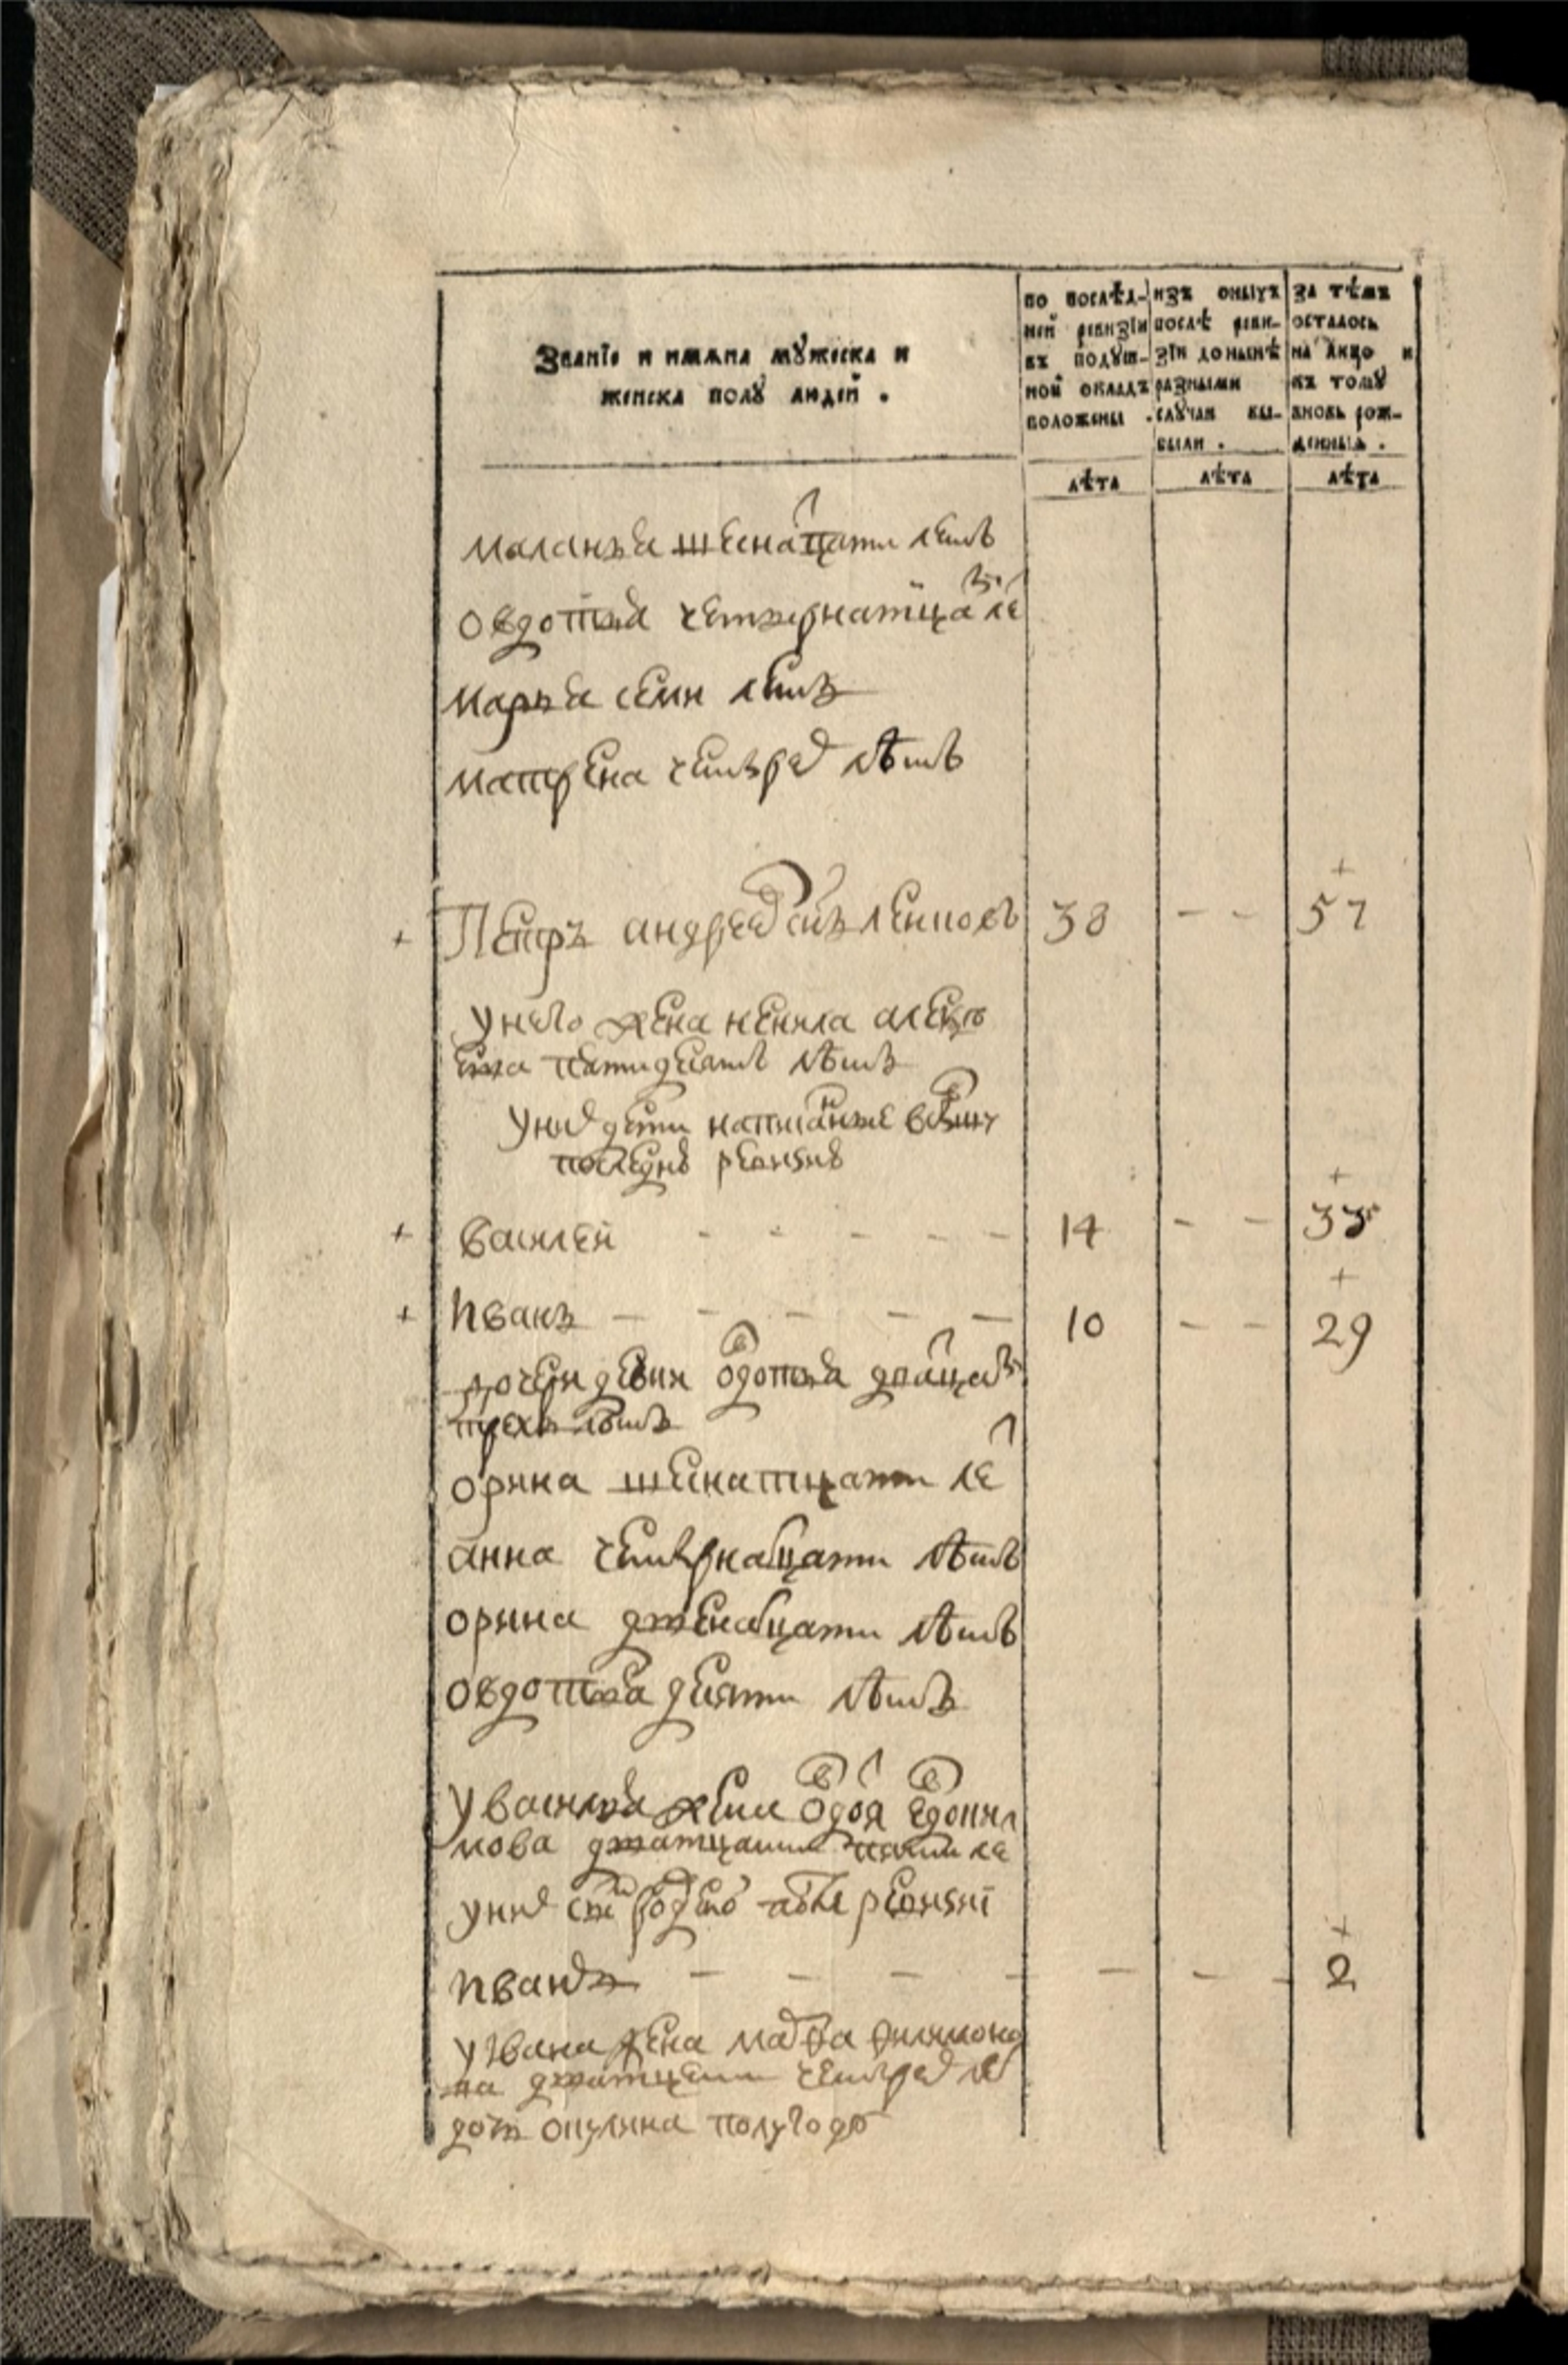 Званїе и имѧна мꙋжеска и
женска полꙋ людей .
по послѣд-
ней ревизїи
въ подꙋш-
ной окладъ
положены .
изъ оныхъ
послѣ реви-
зїи до нынѣ
разными
слꙋчаи вы-
были .
за тѣмъ
осталось
на лицо и
къ томꙋ
вновь рож-
денныѧ .
лѣта лѣта лѣта
маланья шеснатцати летъ
овдотья четырнатцати ле
марья семи летъ
матрена четырех лѣтъ
Петръ андреев снъ 38 - - 57
у него жена ненила
пятидесятъ лѣтъ
у них дети написанные
последне ревизне
василей - - - - - 14 - - 33
иванъ - - - - - 10 - - 29
дочери девки овдотья дватцати
трехъ летъ
орина шеснатцати ле
анна четырнатцати лѣтъ
орина двенатцати лѣтъ
овдотья десяти лѣтъ
у василья жена
дватцати пяти ле
у них снъ ревизиї
иванъ - - - - - - - 2
у ивана жена филимоно
ва дватцати четырех ле
дочь полугоду